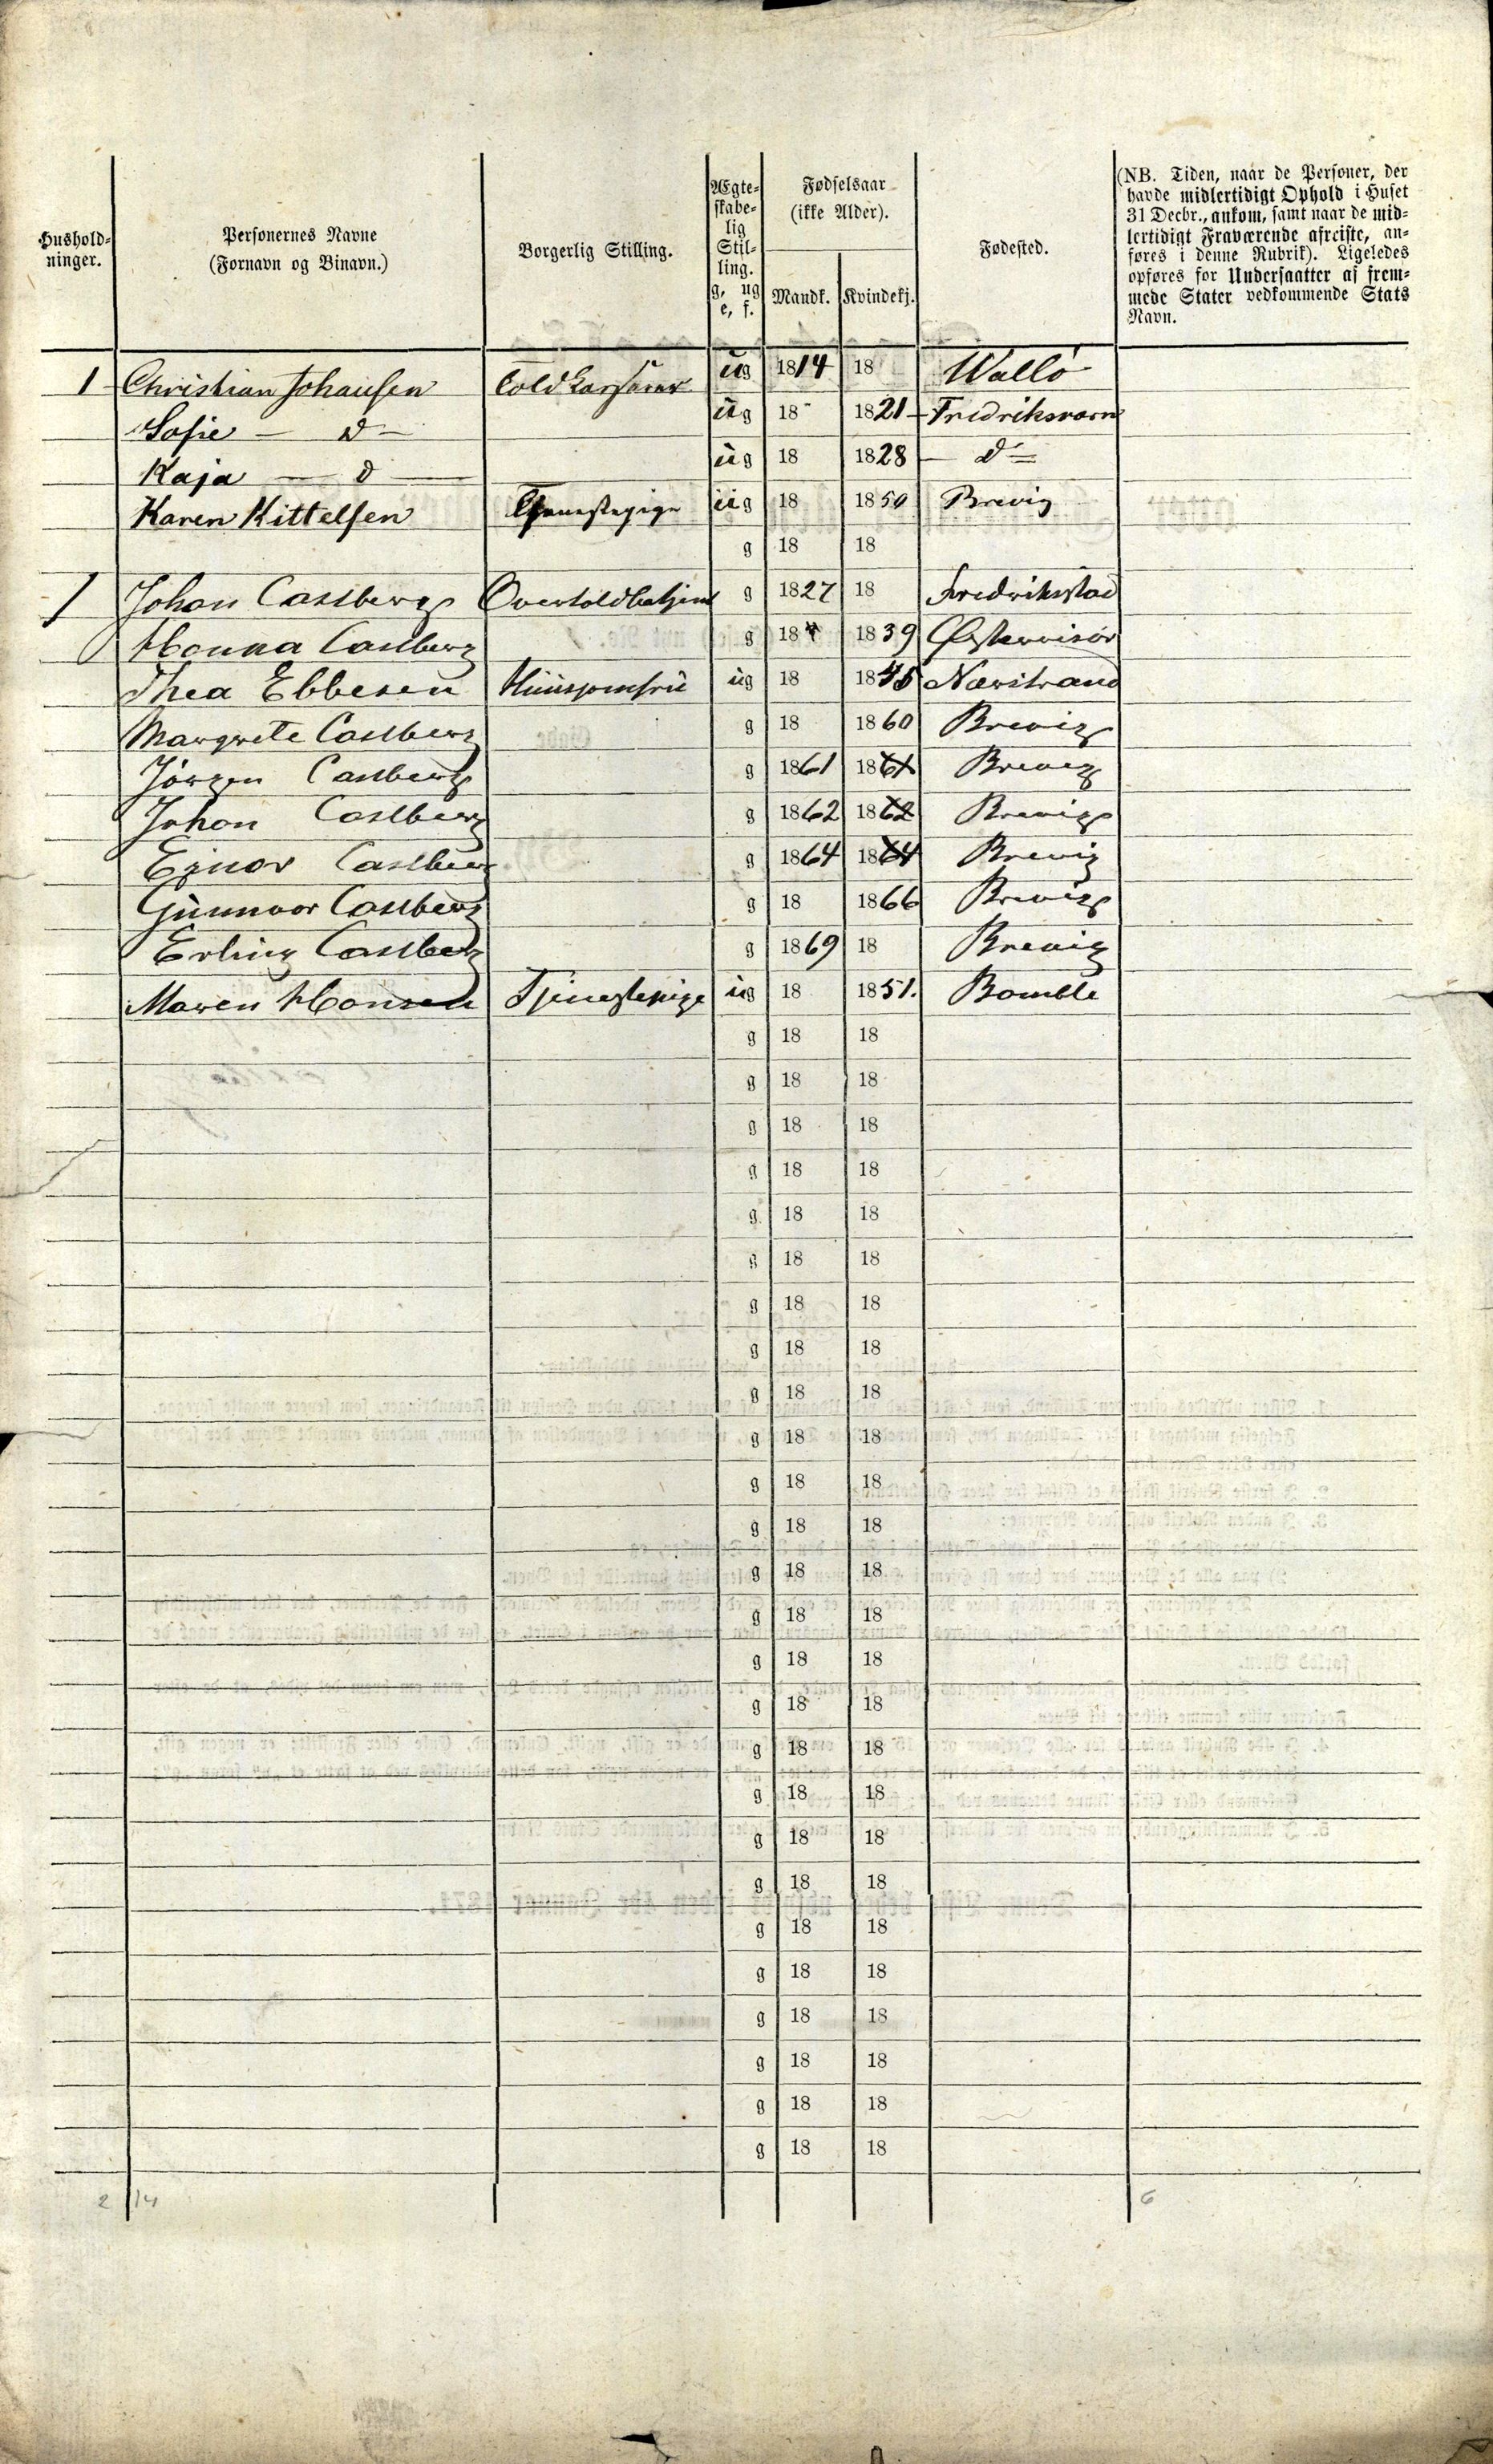 Husholdninger.
Personernes Navne
(Fornavn og Binavn.)
Borgerlig Stilling.
Ægte-
skabe-
lig
Stil-
ling.
g, ug
e, f.
Fødselsaar
(ikke Alder).
Mandk. Kvindekj.
Fødested.
(NB. Tiden, naar de Personer, der
havde midlertidigt Ophold i Huset
31 Decbr., ankom, samt naar de mid-
lertidigt Fraværende afreiste, an-
føres i denne Rubrik). Ligeledes
opføres for Undersaatter af frem-
mede Stater vedkommende Stats
Navn.
1 Christian Johansen Toldkasserer ug 1814 18 Wallö
Sofie — d — ug 18 1821 Fredriksværn
Kaja — d — ug 18 1828 — d —
Karen Kittelsen Tjenestepige ug 18 1850 Brevig
g 18 18
1 Johan Castberg Overtoldbetjent g 1827 18 Fredrikstad
Hanna Castberg g 18 1839 Østerrisör
Thea Ebbesen Huusjomfru ug 18 1845 Nærstrand
Margrete Castberg g 18 1860 Brevig
Jörgen Castberg g 1861 1861 Brevig
Johan Castberg g 1862 1862 Brevig
Ejnar Castberg g 1864 1864 Brevig
Gunnvor Castberg g 18 1866 Brevig
Erling Castberg g 1869 18 Brevig
Maren Hansen Tjenestepige ug 18 1851. Bamble
g 18 18
g 18 18
g 18 18
g 18 18
g 18 18
g 18 18
g 18 18
g 18 18
g 18 18
g 18 18
g 18 18
g 18 18
g 18 18
g 18 18
g 18 18
g 18 18
g 18 18
g 18 18
g 18 18
g 18 18
g 18 18
g 18 18
g 18 18
g 18 18
g 18 18
g 18 18
2 14 6